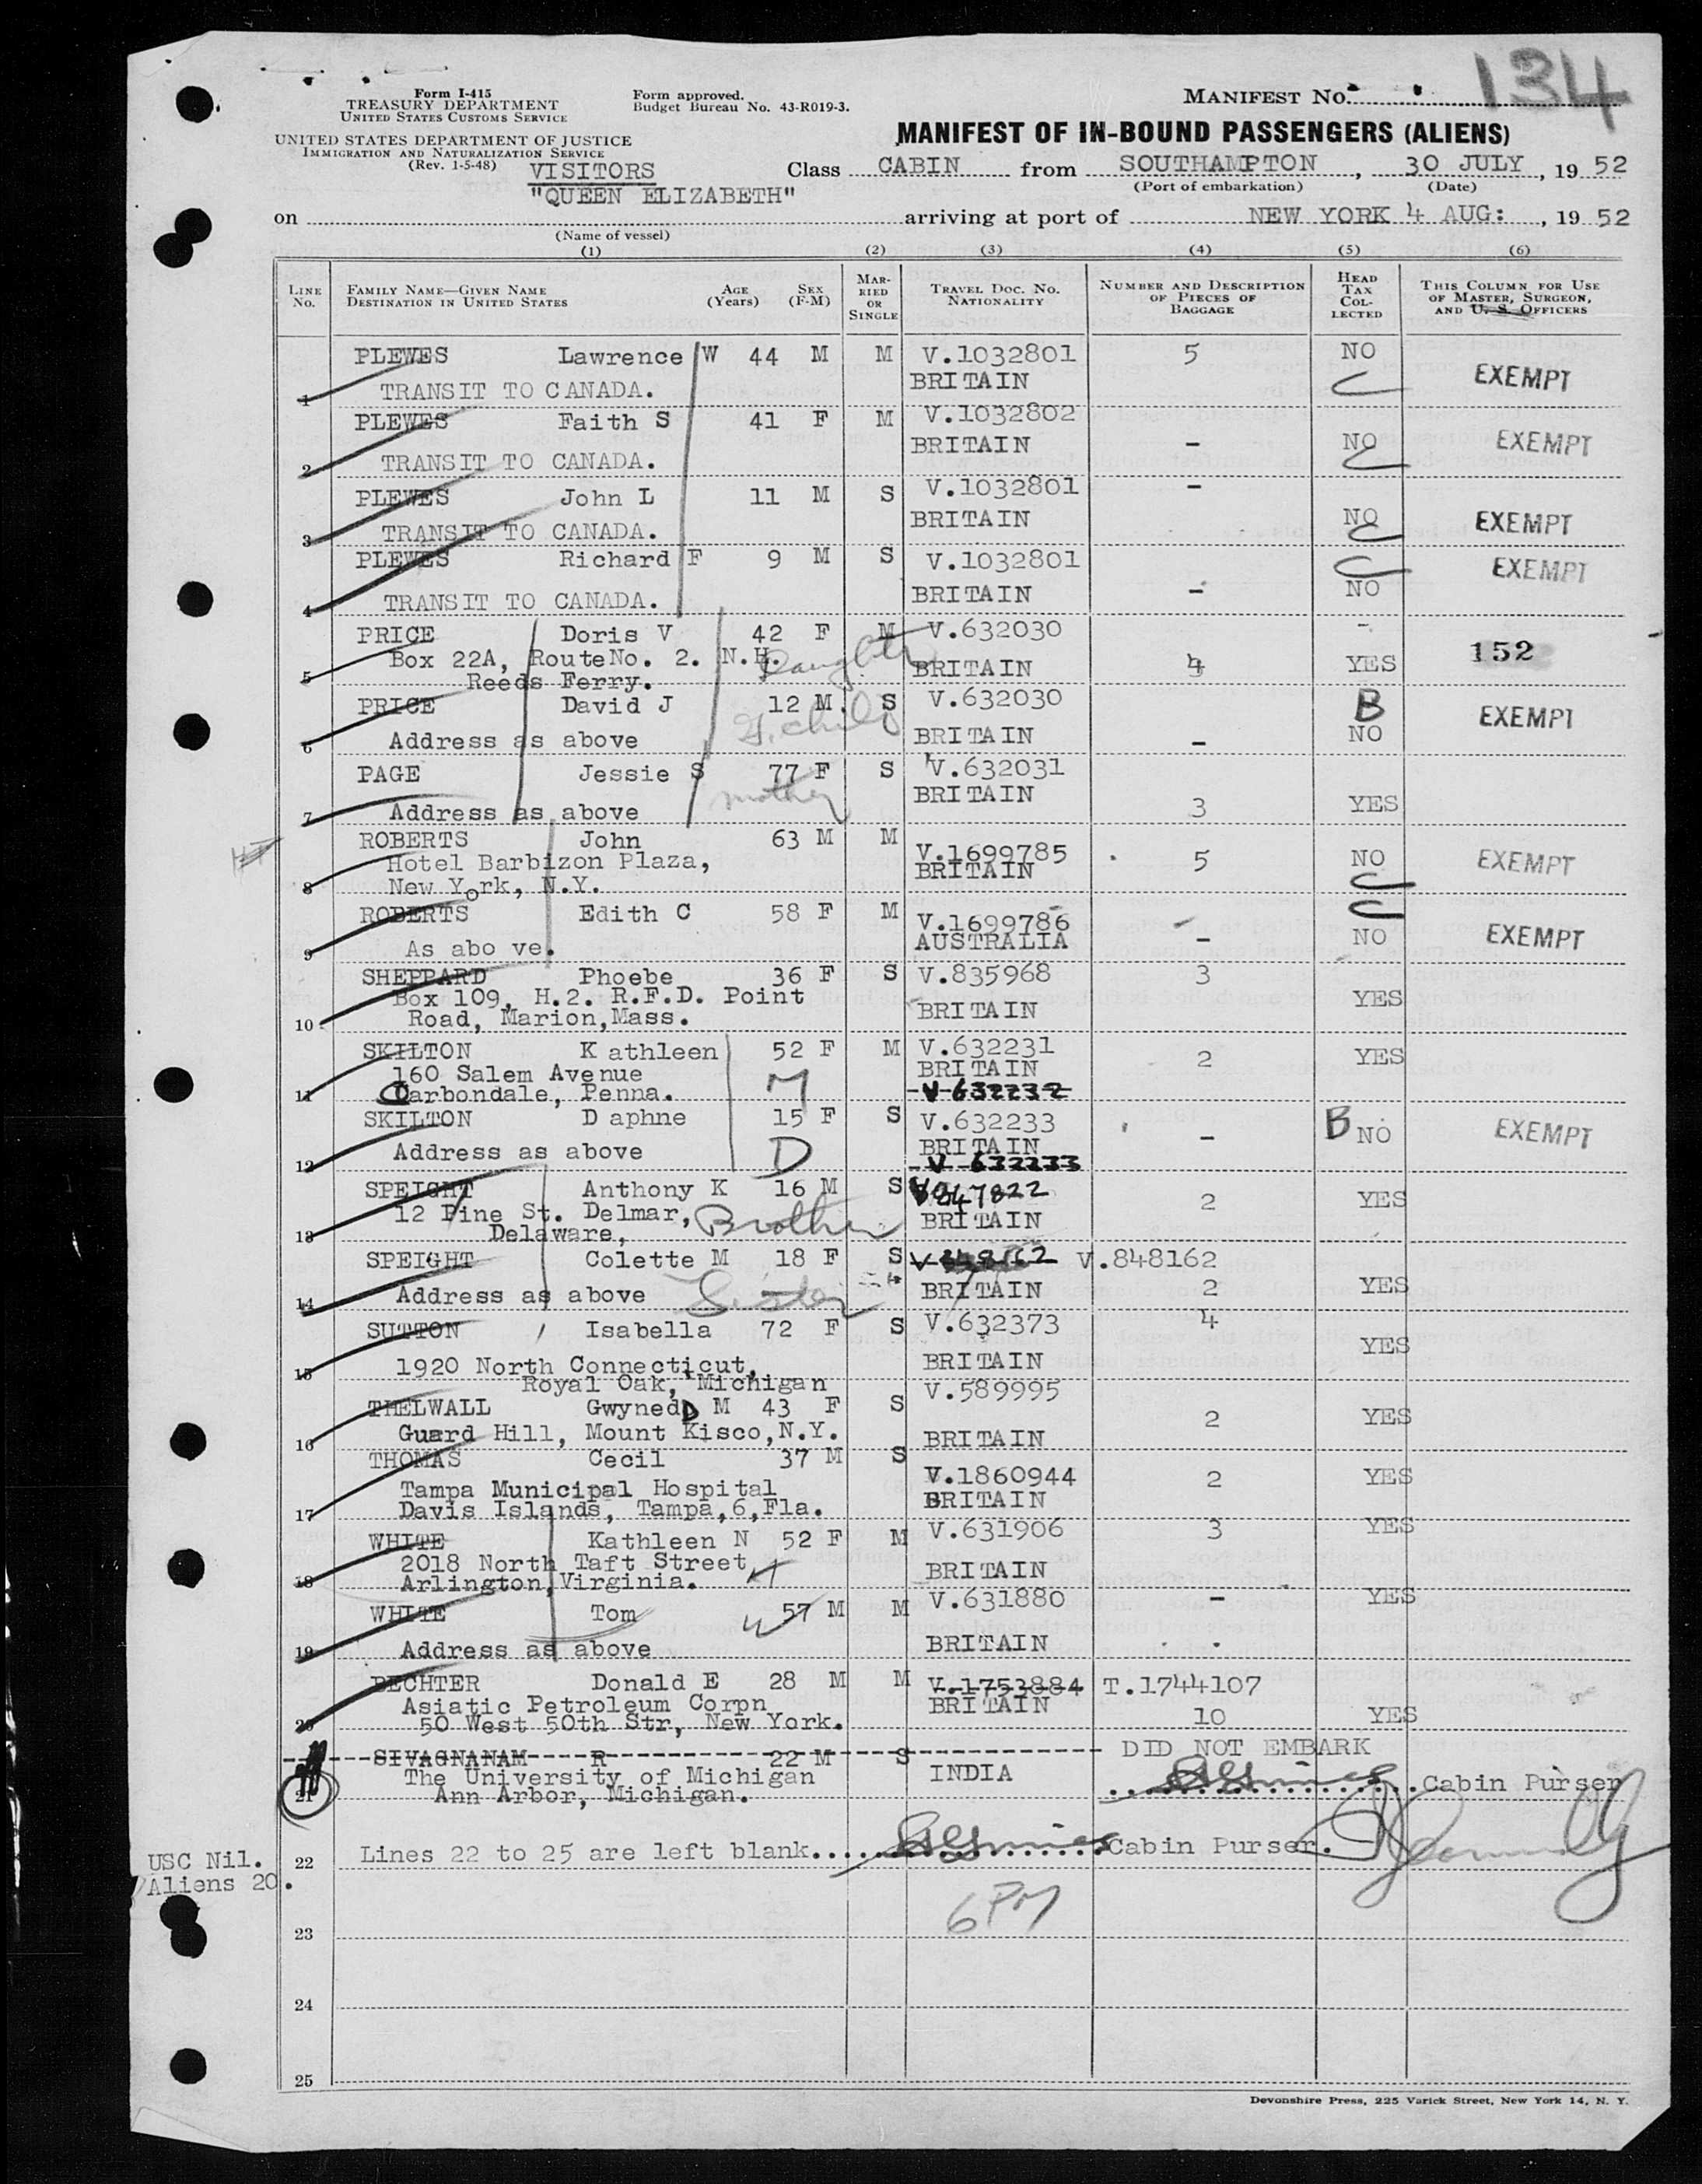 134
Form I-415
TREASURY DEPARTMENT
UNITED STATES CUSTOMS SERVICE
Form approved.
Budget Bureau No. 43-R019-3.
MANIFEST No.
UNITED STATES DEPARTMENT OF JUSTICE
IMMIGRATION AND NATURALIZATION SERVICE
(Rev. 1-5-48)
MANIFEST OF IN-BOUND PASSENGERS (ALIENS)
VISITORS Class CABIN from SOUTHAMPTON, 30 JULY, 19 52
(Port of embarkation) (Date)
on "QUEEN ELIZABETH" arriving at port of NEW YORK 4 AUG:, 19 52
(Name of vessel)
(1) (2) (3) (4) (5) (6)
LINE No. FAMILY NAME—GIVEN NAME DESTINATION IN UNITED STATES AGE (Years) SEX (F-M) MARRIED OR SINGLE TRAVEL DOC. NO. NATIONALITY NUMBER AND DESCRIPTION OF PIECES OF BAGGAGE HEAD TAX COLLECTED THIS COLUMN FOR USE OF MASTER, SURGEON, AND U. S. OFFICERS
PLEWES Lawrence W 44 M M V.1032801 5 NO
1 TRANSIT TO CANADA. BRITAIN C EXEMPT
PLEWES Faith S 41 F M V.1032802
2 TRANSIT TO CANADA. BRITAIN - NO C EXEMPT
PLEWES John L 11 M S V.1032801 -
3 TRANSIT TO CANADA. BRITAIN NO C EXEMPT
PLEWES Richard F 9 M S V.1032801 C EXEMPT
4 TRANSIT TO CANADA. BRITAIN - NO
PRICE Doris V 42 F M V.632030 -
Box 22A, RouteNo. 2. N.H. Daughter BRITAIN 4 YES 152
5 Reeds Ferry.
PRICE David J 12 M. S V.632030 B EXEMPT
6 Address as above G. child BRITAIN - NO
PAGE Jessie S 77 F S V.632031
mother BRITAIN
7 Address as above 3 YES
ROBERTS John 63 M M
Hotel Barbizon Plaza, V.1699785 5 NO EXEMPT
8 New York, N.Y. BRITAIN C
ROBERTS Edith C 58 F M V.1699786 C
9 As abo ve. AUSTRALIA - NO EXEMPT
SHEPPARD Phoebe 36 F S V.835968 3
Box 109, H.2. R.F.D. Point BRITAIN YES
10 Road, Marion,Mass.
SKILTON K athleen 52 F M V.632231 2 YES
160 Salem Avenue M BRITAIN
11 Carbondale, Penna. V 632232
SKILTON D aphne 15 F S V.632233 B NO EXEMPT
12 Address as above D BRITAIN -
V 632233
SPEIGHT Anthony K 16 M S V847822 2 YES
12 Pine St. Delmar, Brother BRITAIN
13 Delaware,
SPEIGHT Colette M 18 F S V 848162 V.848162
14 Address as above Sister BRITAIN 2 YES
SUTTON Isabella 72 F S V.632373 4
YES
15 1920 North Connecticut, BRITAIN
Royal Oak, Michigan
THELWALL GwyneDD M 43 F S V.589995
2 YES
16 Guard Hill, Mount Kisco,N.Y. BRITAIN
THOMAS Cecil 37 M S
Tampa Municipal Hospital V.1860944 2 YES
17 Davis Islands, Tampa,6,Fla. BRITAIN
WHITE Kathleen N 52 F M V.631906 3 YES
2018 North Taft Street H BRITAIN
18 Arlington,Virginia.
WHITE Tom 57 M M V.631880 - YES
W
19 Address as above BRITAIN
BECHTER Donald E 28 M M V.1753884 T.1744107
Asiatic Petroleum Corpn BRITAIN
20 50 West 50th Str, New York. 10 YES
SIVAGNANAM R 22 M S DID NOT EMBARK
The University of Michigan INDIA Cabin Purser
21 Ann Arbor, Michigan.
USC Nil. 22 Lines 22 to 25 are left blank. Cabin Purser.
Aliens 20.
6 PM
23
24
25
Devonshire Press, 225 Varick Street, New York 14, N. Y.